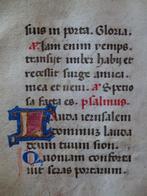 suis in porta. Gloria.
a Iam enim yemps
transiit imber habiit et
recessit surge amica
mea et veni. a Spetio
sa facta es. psalmus.
Lauda ierusalem
dominus lauda
deum tuum sion.
Quoniam conforta
uit seras portarum